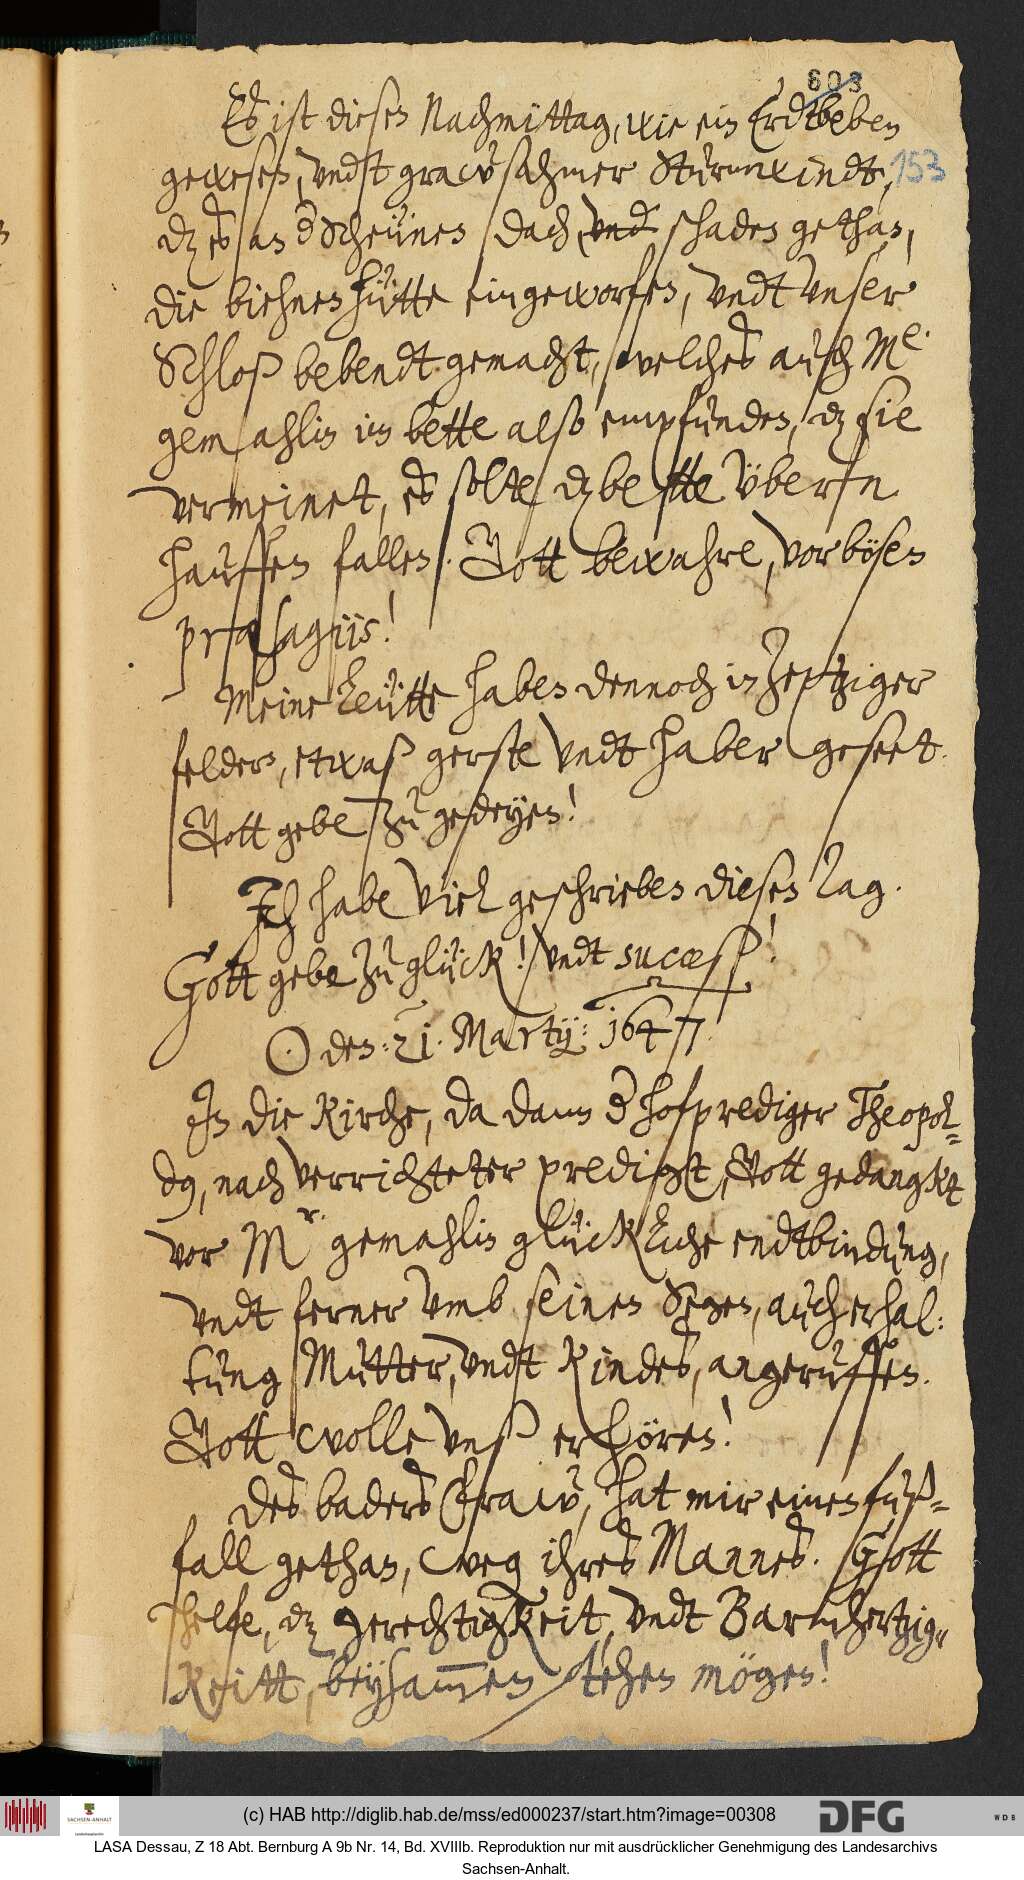 603
Es ist diesen Nachmittag, wie ein Erdtbeben
153
gewesen, vndt grawsahmer Sturmwindt,
dz es an d Scheunen dach, vnd schaden gethan,
die biehnenhütte eingeworfen, vndt vnser
Schloß bebendt gemacht, welches auch Me.
gemahlin im bette also empfunden, dz sie
vermeinet, es solte dz bette übern
hauffen fallen. Gott bewahre, vor bösen
præsagijs!
Meine Leütte haben dennoch in Zeptziger
felder, etwaß gerste vndt haber geseet.
Gott gebe zu gedeyen!
Ich habe viel geschrieben diesen Tag.
Gott gebe zu glück! vndt succeß!
☉ den: 21. Martij: 1647.
In die Kirche, da dann d hofprediger Theopol-
dg, nach verrichteter predigt, Gott gedangkt
vor Mr. gemahlin glückliche endtbindung,
vndt ferner vmb seinen Segen, auch erhal:
tung Mutter, vndt Kindes, angeruffen.
Gott wolle vnß erhören!
Des baders Fraw, hat mir einen fuß-
fall gethan, weg ihres Mannes. Gott
helfe, dz gerechtigkeit, vndt Barmhertzig-
keitt, beysam̅en stehen mögen!
(c) HAB http://diglib.hab.de/mss/ed000237/start.htm?image=00308
DFG
WDB
SACHSEN-ANHALT
LASA Dessau, Z 18 Abt. Bernburg A 9b Nr. 14, Bd. XVIIIb. Reproduktion nur mit ausdrücklicher Genehmigung des Landesarchivs
Sachsen-Anhalt.